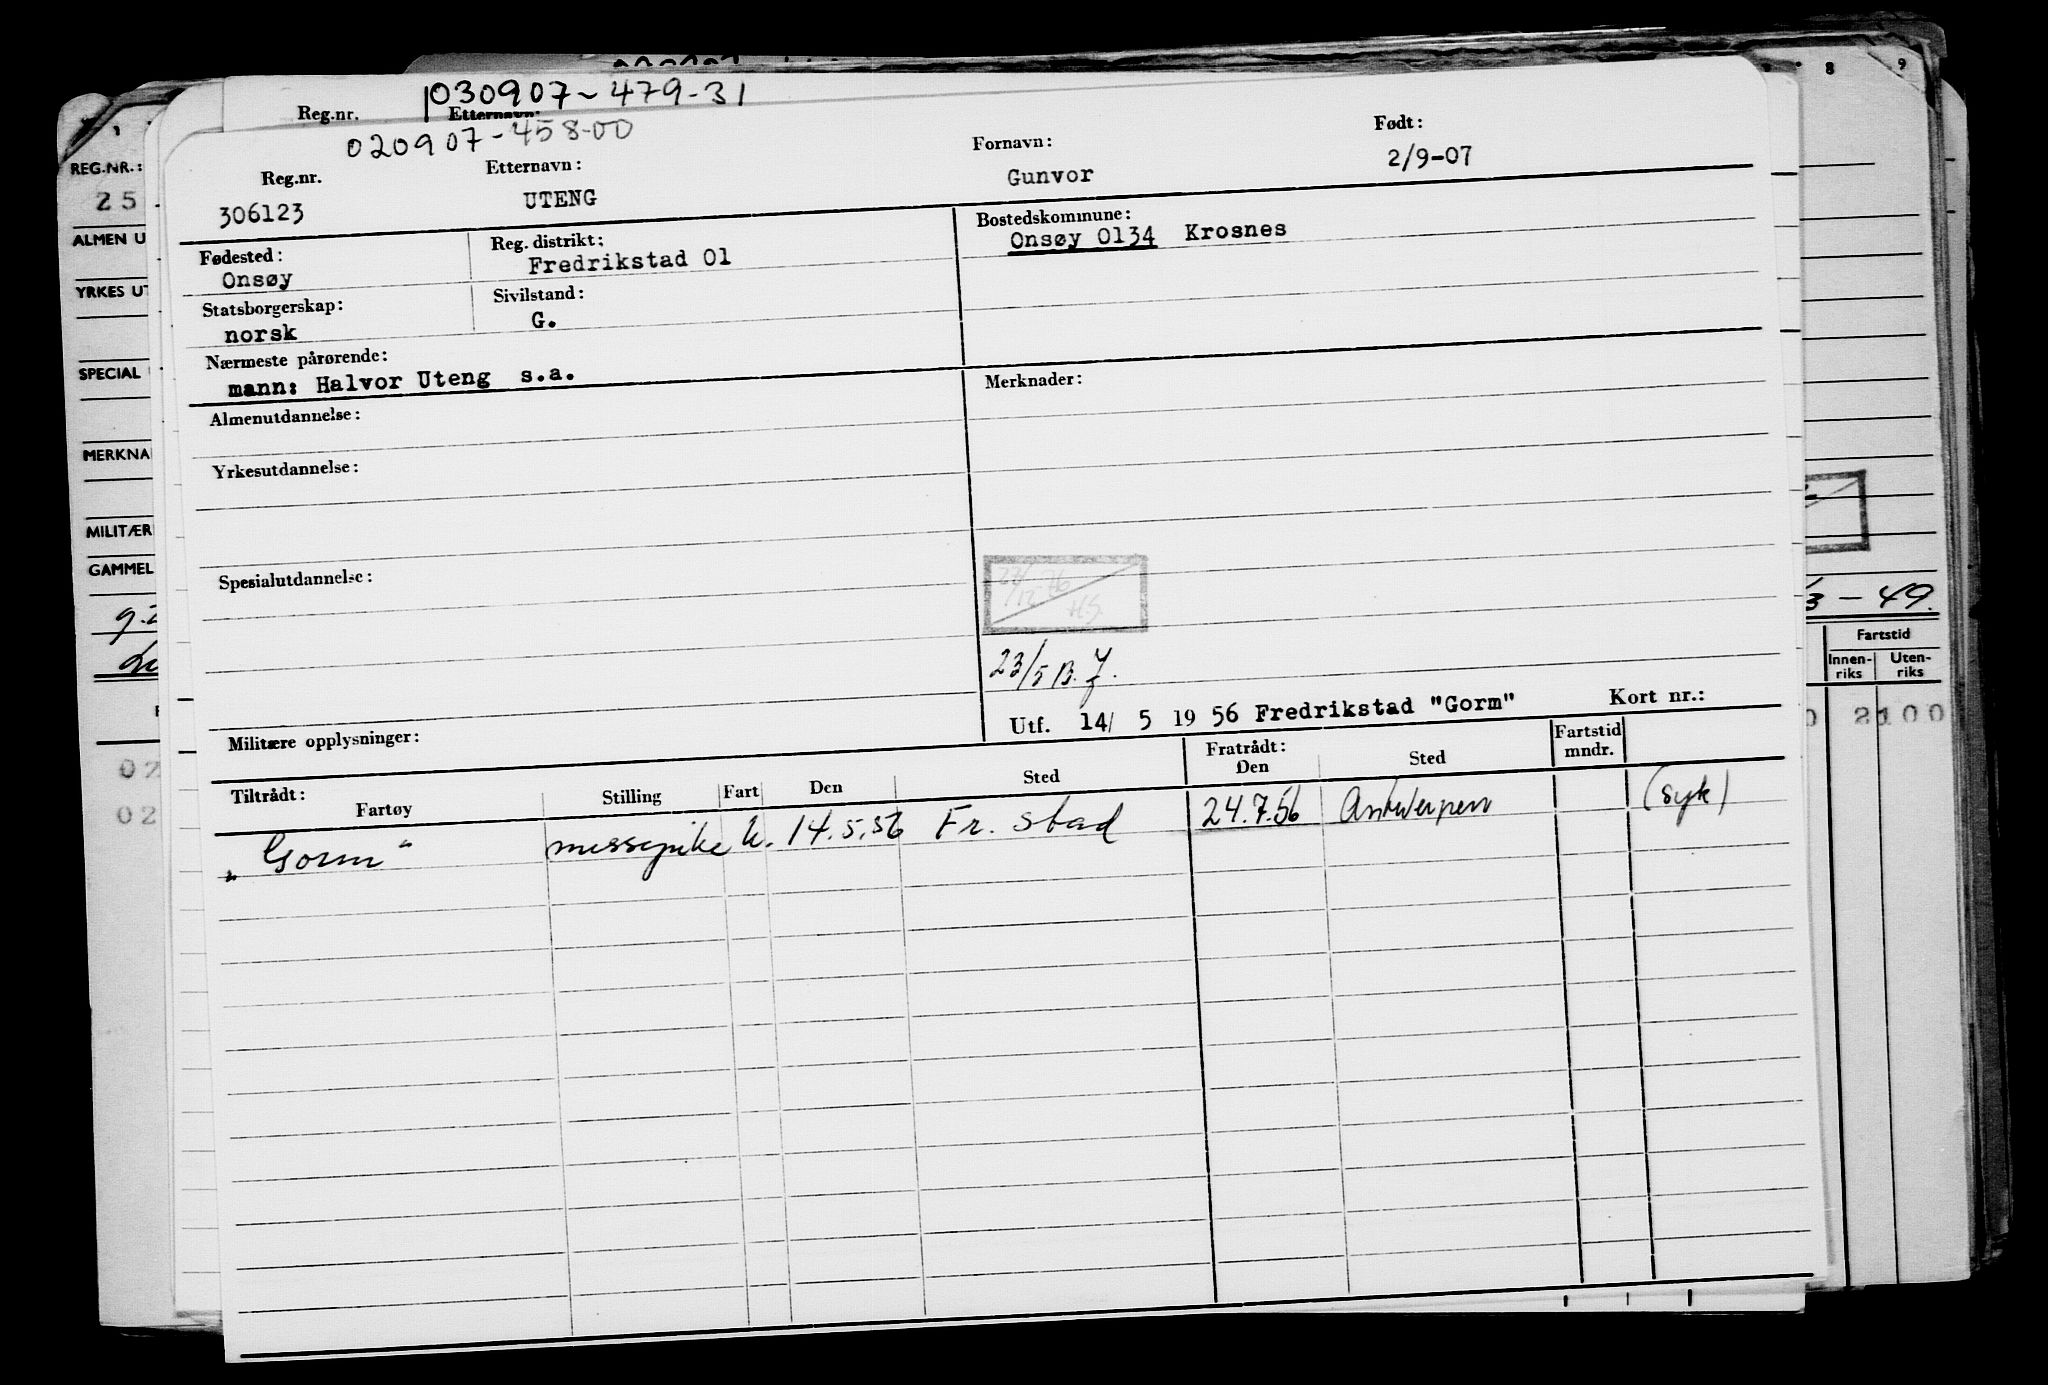 030907-479-31
Reg.nr. Etternavn:
020907-458-00
Reg.nr. Etternavn: Fornavn: Født:
306123 UTENG Gunvor 2/9-07
Fødested: Reg. distrikt: Bostedskommune:
Onsøy Fredrikstad 01 Onsøy 0134 Krosnes
Statsborgerskap: Sivilstand:
norsk G.
Nærmeste pårørende:
mann: Halvor Uteng s.a.
Almenutdannelse: Merknader:
Yrkesutdannelse:
Spesialutdannelse:
23/12 76
HS
23/5 B.J.
Militære opplysninger: Utf. 14/ 5 19 56 Fredrikstad "Gorm" Kort nr.:
Tiltrådt: Fratrådt: Fartstid mndr.
Fartøy Stilling Fart Den Sted Den Sted
"Gorm" messepike u. 14.5.56 Fr. stad 24.7.56 Antwerpen (syk)
REG.NR.:
25
ALMEN U
YRKES UT
SPECIAL
MERKNA
MILITÆR
GAMMEL
02
02
8 9
/3 - 49.
Fartstid
Innen-riks Uten-riks
0 2100